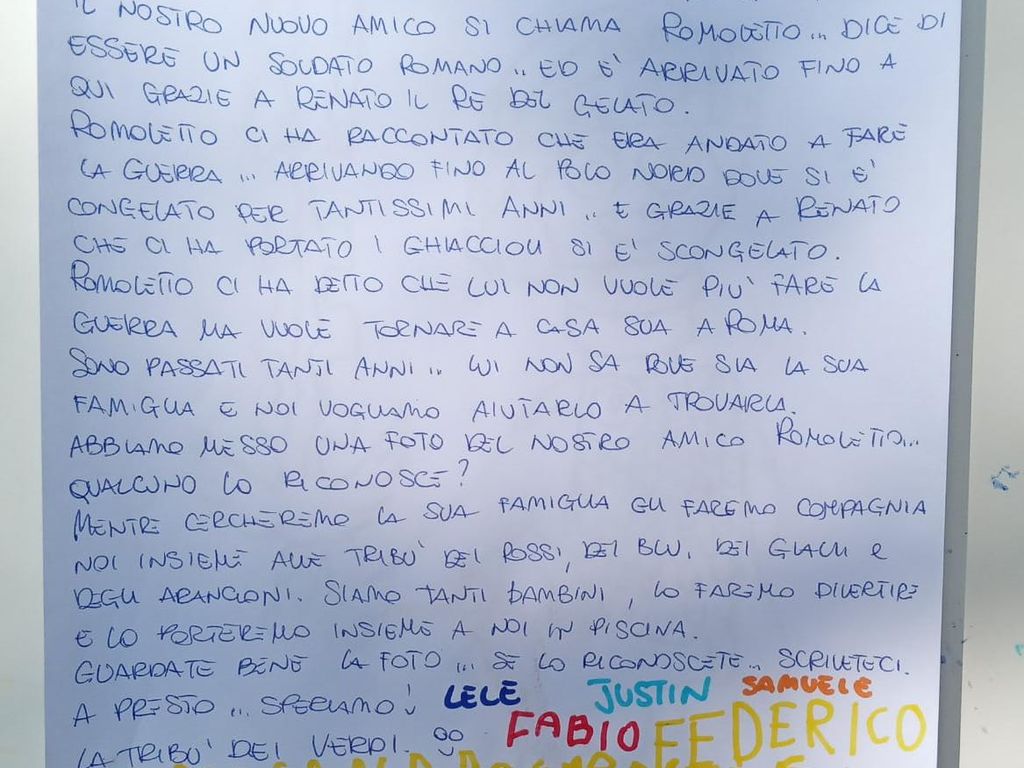 IL NOSTRO NUOVO AMICO SI CHIAMA ROMOLETTO... DICE DI
ESSERE UN SOLDATO ROMANO.. ED E' ARRIVATO FINO A
QUI GRAZIE A RENATO IL RE DEL GELATO.
ROMOLETTO CI HA RACCONTATO CHE ERA ANDATO A FARE
LA GUERRA... ARRIVANDO FINO AL POLO NORD DOVE SI E'
CONGELATO PER TANTISSIMI ANNI.. E GRAZIE A RENATO
CHE CI HA PORTATO I GHIACCIOLI SI E' SCONGELATO.
ROMOLETTO CI HA DETTO CHE LUI NON VUOLE PIU' FARE LA
GUERRA MA VUOLE TORNARE A CASA SUA A ROMA.
SONO PASSATI TANTI ANNI.. LUI NON SA DOVE SIA LA SUA
FAMIGLIA E NOI VOGLIAMO AIUTARLO A TROVARLA.
ABBIAMO MESSO UNA FOTO DEL NOSTRO AMICO ROMOLETTO...
QUALCUNO LO RICONOSCE?
MENTRE CERCHEREMO LA SUA FAMIGLIA GLI FAREMO COMPAGNIA
NOI INSIEME ALLE TRIBU' DEI ROSSI, DEI BLU, DEI GIALLI E
DEGLI ARANCIONI. SIAMO TANTI BAMBINI, LO FAREMO DIVERTIRE
E LO PORTEREMO INSIEME A NOI IN PISCINA.
GUARDATE BENE LA FOTO... SE LO RICONOSCETE... SCRIVETECI.
A PRESTO... SPERIAMO! LELE JUSTIN SAMUELE
LA TRIBU' DEI VERDI. FABIO FEDERICO